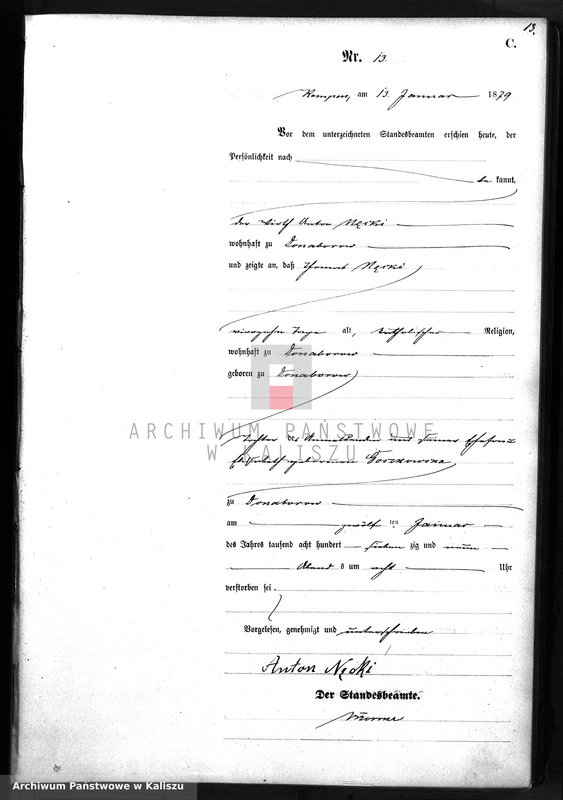 13.
C.
Nr. 13.
Kempen, am 13. Januar 1879
Vor dem unterzeichneten Standesbeamten erschien heute, der
Persönlichkeit nach
be kannt,
der Wirth Anton Nęcki
wohnhaft zu Donaborow
und zeigte an, daß Thomas Nęcki
vierzehn Tage alt, katholischer Religion,
wohnhaft zu Donaborow
geboren zu Donaborow
ARCHIWUM PAŃSTWOWE
W KALISZU
des Anmeldenden und seiner Ehefrau
Elisabeth geborenen
zu Donaborow
am zwölf ten Januar
des Jahres tausend acht hundert sieben zig und neun
Abend s um acht Uhr
verstorben sei.
Vorgelesen, genehmigt und unterschrieben
Anton Nęcki
Der Standesbeamte.
Archiwum Państwowe w Kaliszu